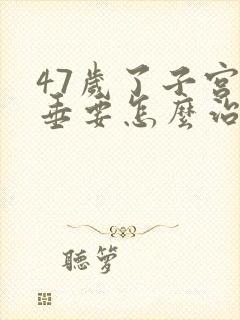 47歲了子宮
垂要怎麼治
聽夢